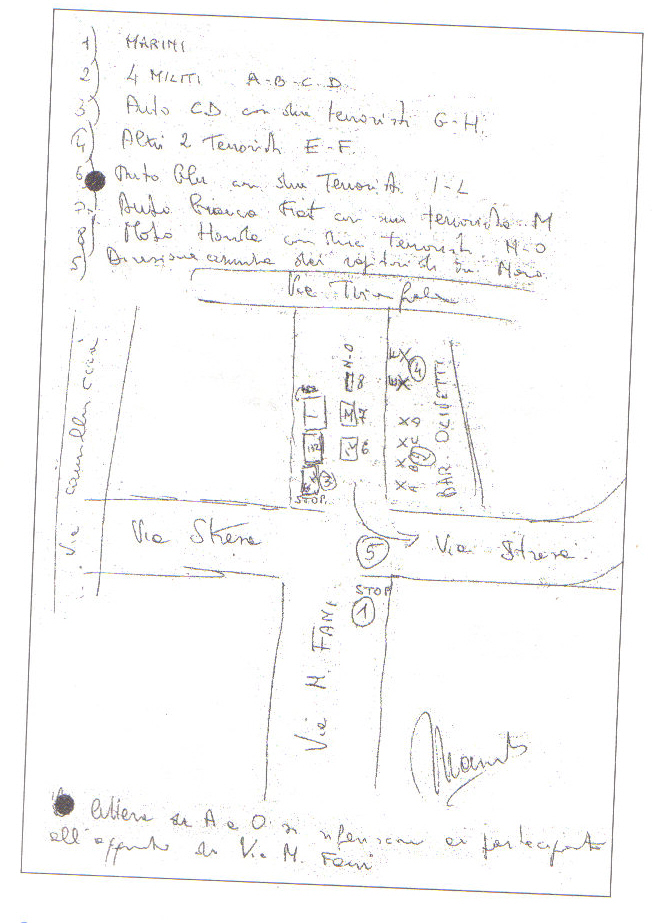 1) MARINI
2) 4 MILITI A-B-C-D
3) Auto CD con due terroristi G-H.
4) Altri 2 Terroristi E-F
6) Auto Blu con due Terroristi I-L
7) Auto Bianca Fiat con un terrorista M
8) Moto Honda con due terroristi N-O
5) Direzione assunta dai rapitori di Moro
Via Trionfale
Via
N-O
8
4
M 7
132
6
BAR OLIVETTI
X D
X C
X B 2
X A
3
STOP
Via Stresa
5
Via Stresa
STOP
1
Via M. FANI
lettere da A a O si riferiscono ai partecipanti
all'agguato di Via M. Fani